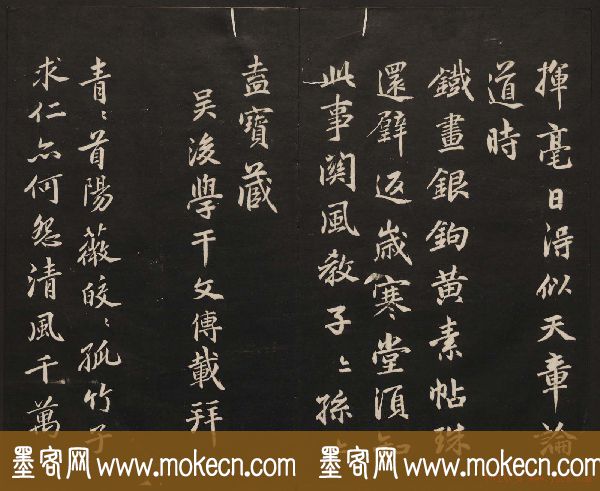 揮毫日得似天章論
道時
鐵畫銀鉤黃素帖珠
還璧返歲寒堂須知
此事関風教子〻孫〻
盍寶藏
吴後學干文傳載拜
青〻首陽薇皎〻孤竹子
求仁亦何怨清風千萬
墨客网 www.mokecn.com 墨客网 www.mokecn.com